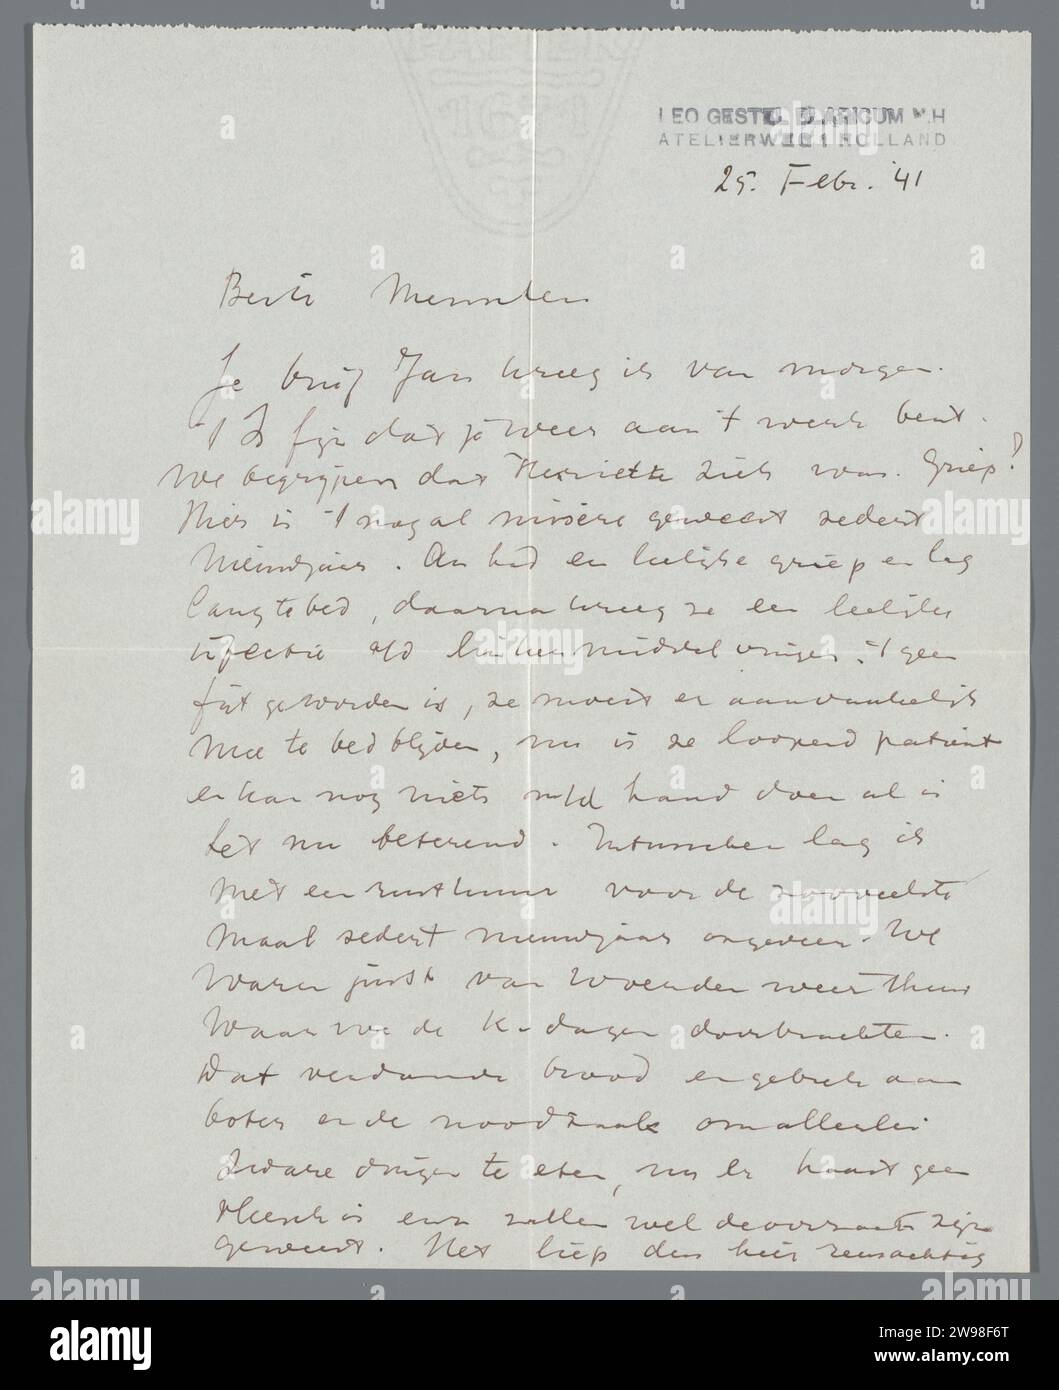 LEO GESTEL BLARICUM N.H
ATELIERWEG 1 HOLLAND
25. Febr. '41
Beste Menschen
Je brief Jan kreeg ik van morgen.
't Is fijn dat je weer aan 't werk bent.
We begrijpen dat Henriette ziek was. Griep?
Hier is 't nogal misère geweest sedert
Nieuwjaar. An had een leelijke griep en lag
lang te bed, daarna kreeg ze een leelijke
infectie a/d linker middel vinger. 't geen
fijt geworden is, ze moest er aanvankelijk
mee te bed blijven, nu is ze loopend patient
en kan nog niets m/d hand doen al is
het nu beterend. Intusschen lag ik
met een voor de zooveelste
maal sedert nieuwjaar ongeveer. We
waren juist van Woerden weer thuis
waar we de K. dagen doorbrachten.
Dat verdomde brood en gebrek aan
boter en de noodzaak om allerlei
zware dingen te eten, nu er haast geen
vleesch is enz zullen wel de oorzaak zijn
geweest. Het liep dan hier
PATTEN
1671
alamy
Image ID: 2W98F6T
www.alamy.com